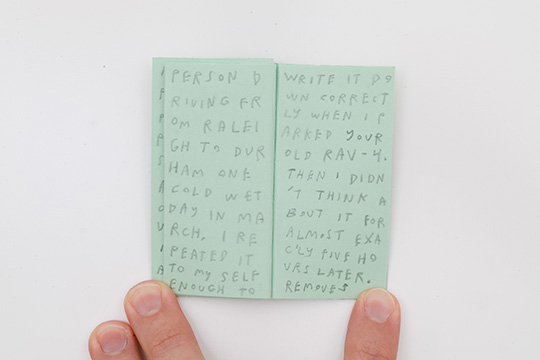 PERSON D
RIVING FR
OM RALEI
GH TO DUR
HAM ONE
COLD WET
DAY IN MA
RCH. I RE
PEATED IT
TO MY SELF
ENOUGH TO
WRITE IT DO
WN CORRECT
LY WHEN I P
ARKED YOUR
OLD RAV-4.
THEN I DIDN
'T THINK A
BOUT IT FOR
ALMOST EXA
CTLY FIVE HO
URS LATER.
REMOVES